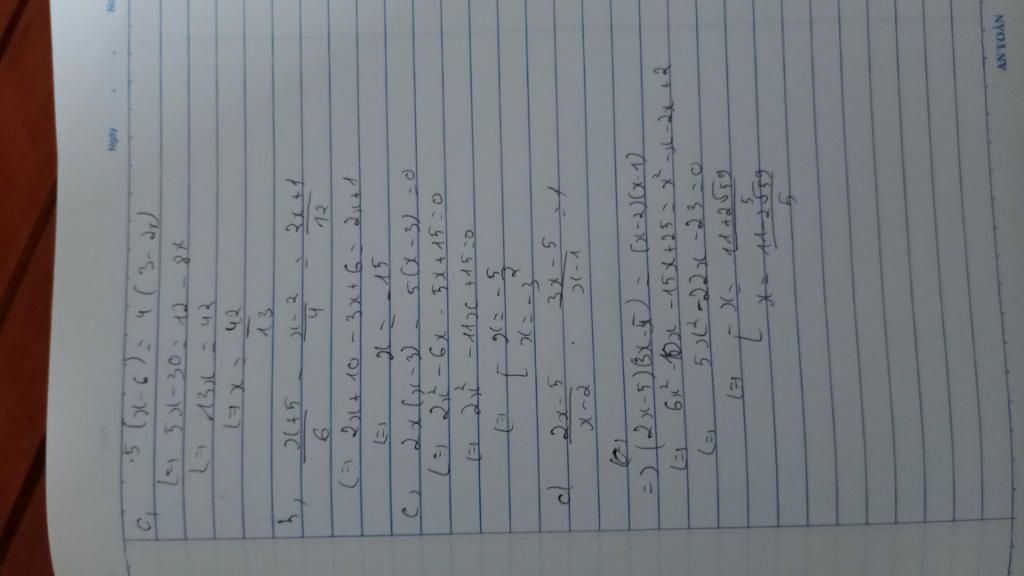 Ngày
No
c, 5 (x-6) = 4 (3-2x)
(=) 5x-30 = 12 - 8x
(=) 13x = 42
(=) x = 42/13
b, (x+5)/6 - (x-2)/4 = (2x+1)/12
(=) 2x + 10 - 3x + 6 = 2x+1
(=) x = -15
c, 2x(x-3) - 5(x-3) = 0
(=) 2x² - 6x - 5x + 15 = 0
(=) 2x² - 11x + 15 = 0
(=) [ x = -5/2
x = -3
d (2x-5)/(x-2) . (3x-5)/(x-1) = 1
=) (2x-5)(3x-5) = (x-2)(x-1)
(=) 6x² - 10x - 15x + 25 = x² - x - 2x + 2
(=) 5x² - 22x - 23 = 0
(=) [ x = (11+2√59)/5
x = (11-2√59)/5
AN TOÀN